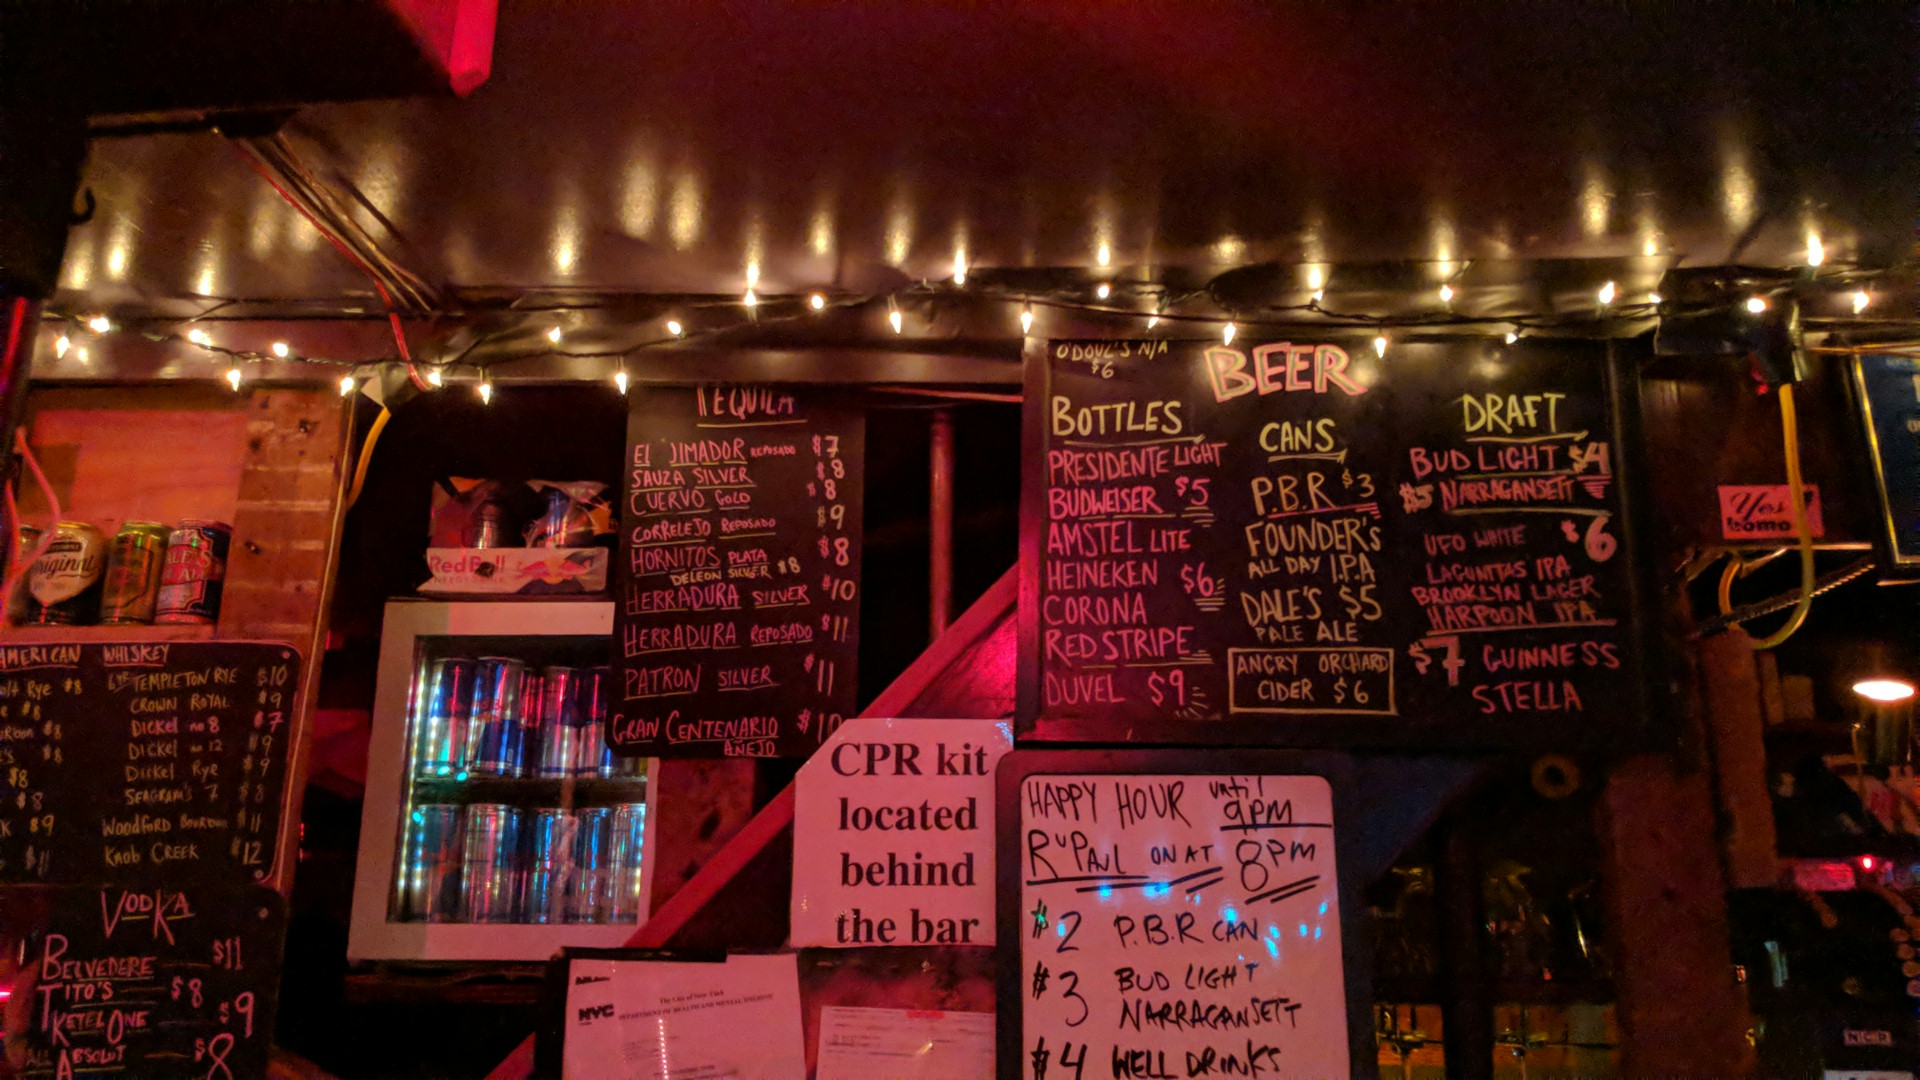 Original
DALE'S
AMERICAN WHISKEY
Rye $8
TEMPLETON RYE $10
CROWN ROYAL $9
DICKEL no 8 $7
DICKEL no 12 $9
DICKEL Rye $9
SEAGRAM'S 7 $8
WOODFORD BOURBON $11
KNOB CREEK $12
$8
$8
$8
$8
$9
$11
VODKA
BELVEDERE $11
TITO'S $8
KETEL ONE $9
ABSOLUT $8
Red Bull
TEQUILA
EL JIMADOR REPOSADO $7
SAUZA SILVER $8
CUERVO GOLD $8
CORRELEJO REPOSADO $9
HORNITOS PLATA $8
DELEON SILVER $8
HERRADURA SILVER $10
HERRADURA REPOSADO $11
PATRON SILVER $11
GRAN CENTENARIO $10
AÑEJO
CPR kit
located
behind
the bar
NYC
The City of New York
DEPARTMENT OF HEALTH AND MENTAL HYGIENE
BEER
O'DOUL'S N/A
$6
BOTTLES
PRESIDENTE LIGHT
BUDWEISER $5
AMSTEL LITE
HEINEKEN $6
CORONA
RED STRIPE
DUVEL $9
CANS
P.B.R $3
FOUNDER'S
ALL DAY I.P.A
DALE'S $5
PALE ALE
ANGRY ORCHARD
CIDER $6
DRAFT
BUD LIGHT $4
$5 NARRAGANSETT
UFO WHITE $6
LAGUNITAS IPA
BROOKLYN LAGER
HARPOON IPA
$7 GUINNESS
STELLA
HAPPY HOUR until 9PM
RuPAUL ON AT 8PM
$2 P.B.R CAN
$3 BUD LIGHT
NARRAGANSETT
$4 WELL DRINKS
Yes
homo